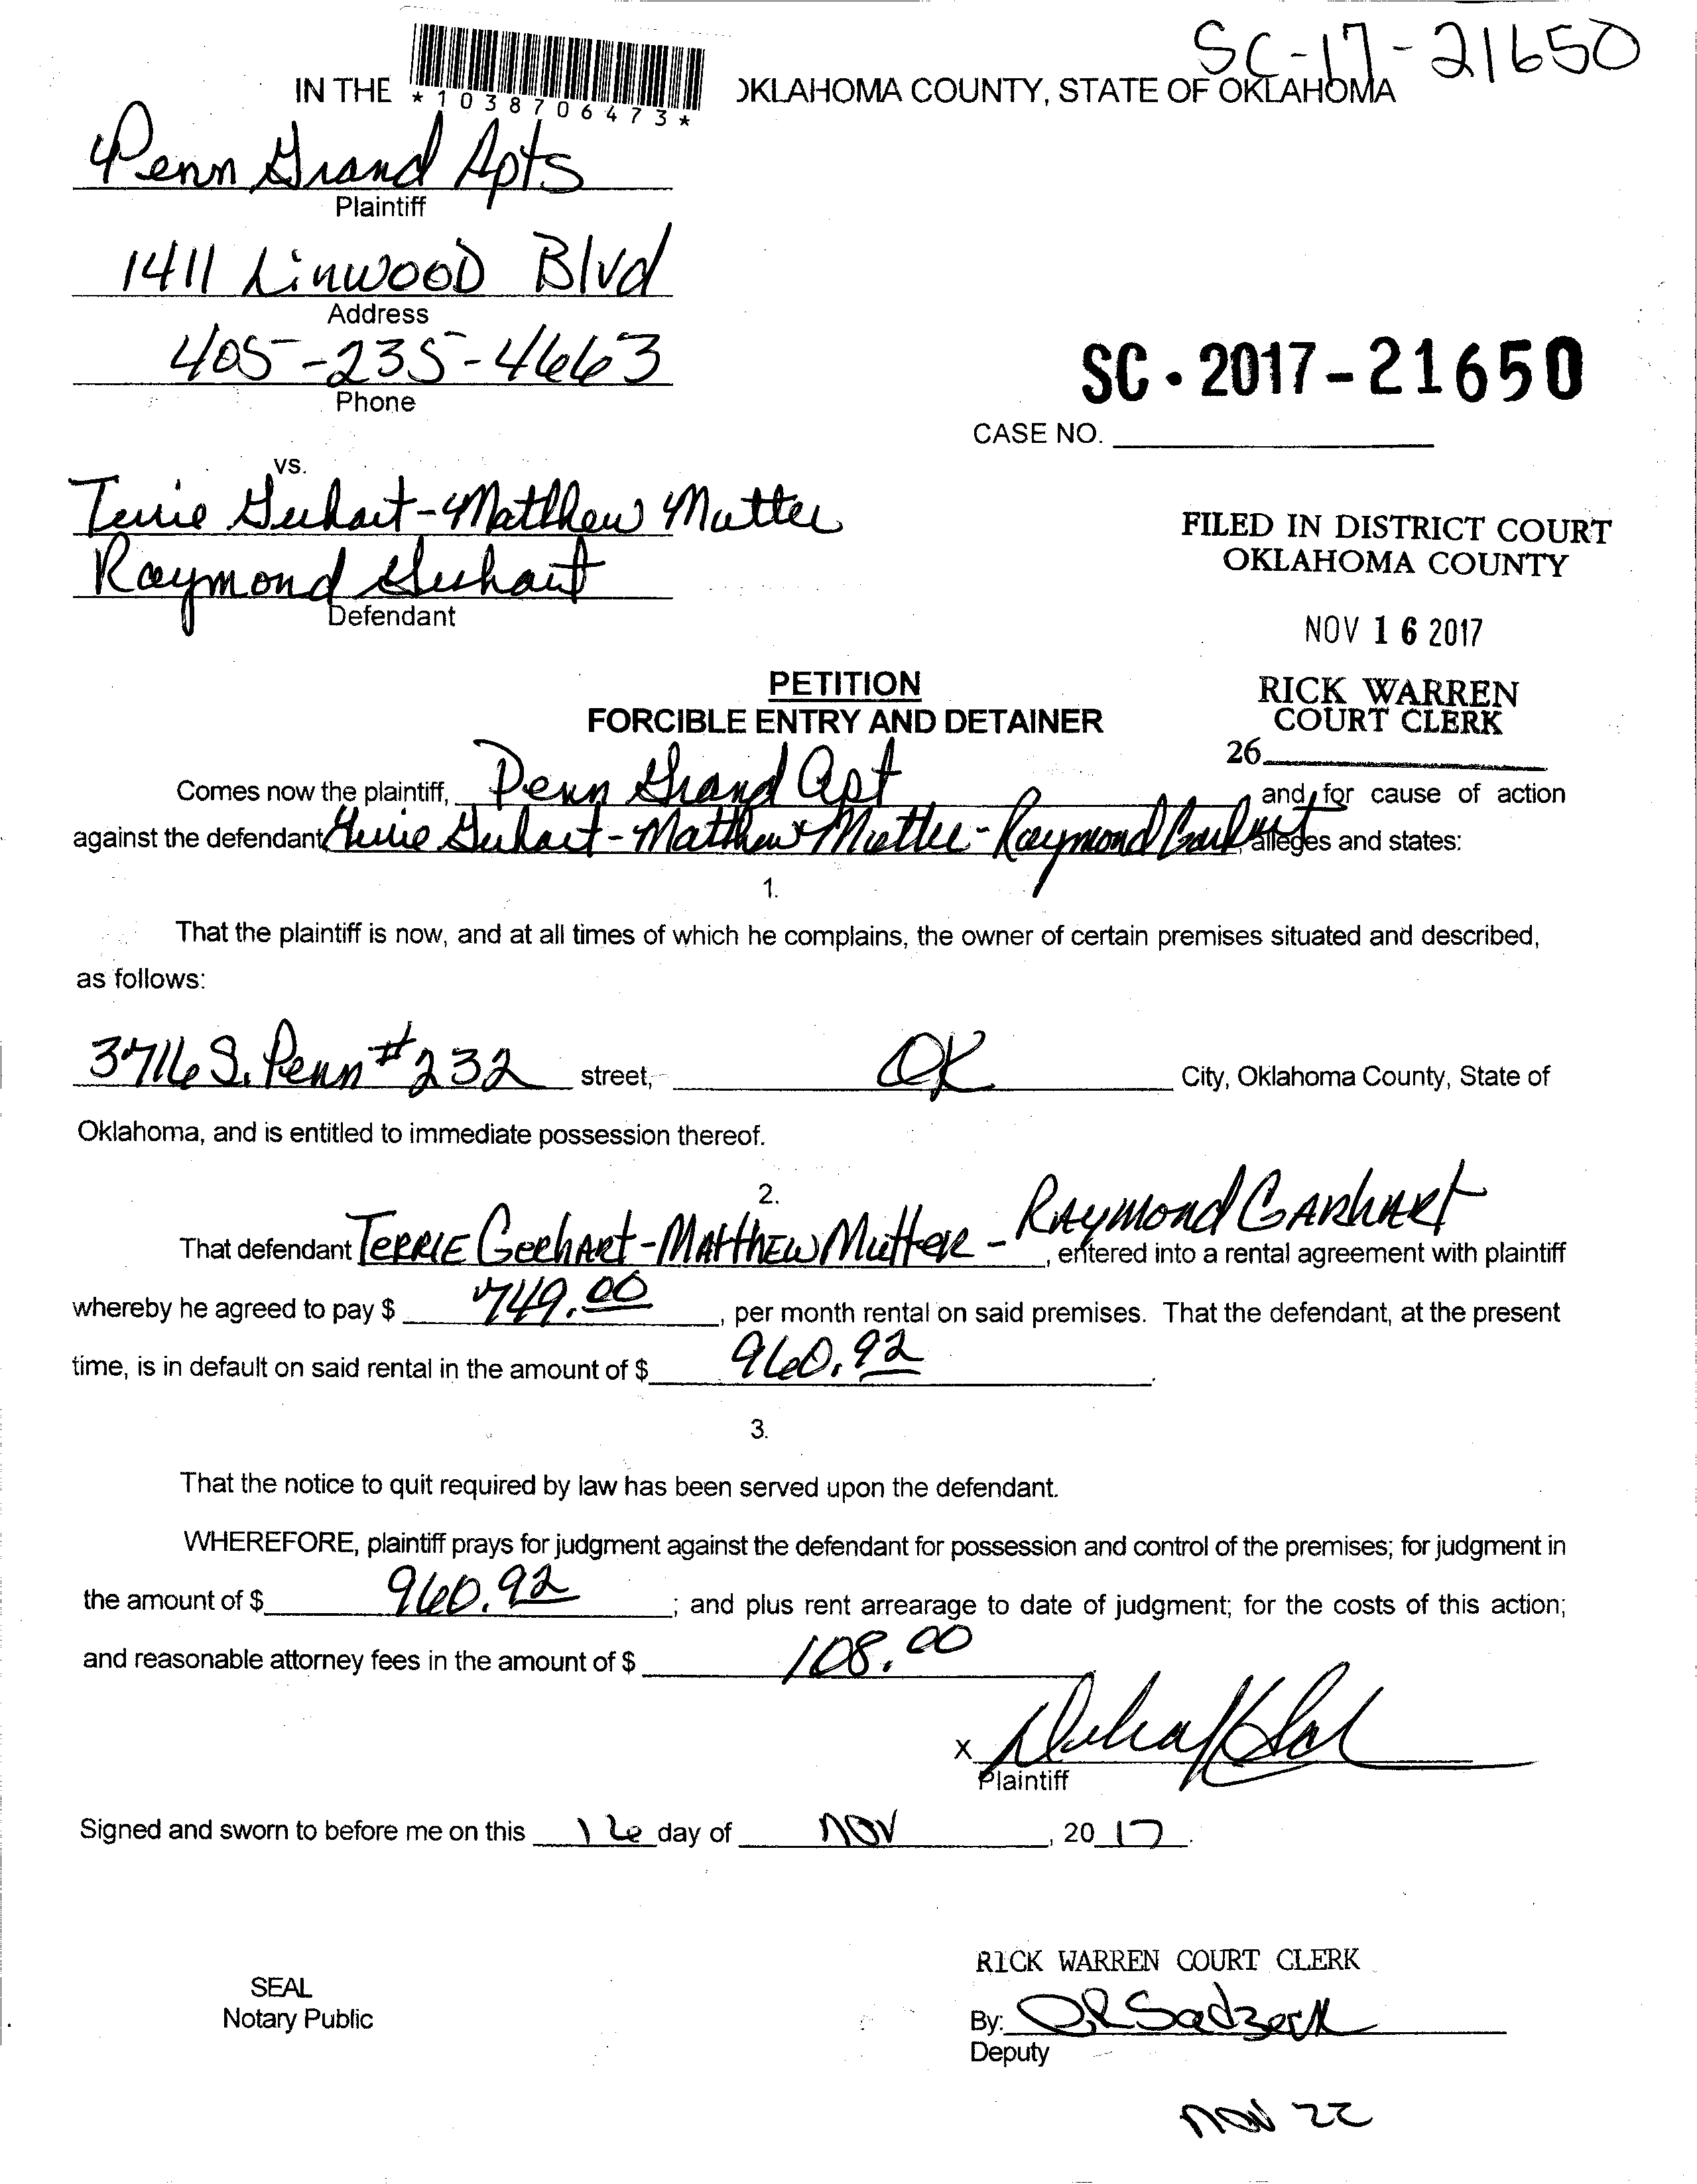 SC-17-21650
IN THE *1038706473* OKLAHOMA COUNTY, STATE OF OKLAHOMA
Penn Grand Apts
Plaintiff
1411 Linwood Blvd
Address
405-235-4663
Phone
SC-2017-21650
CASE NO.
vs.
Terrie Gerhart-Matthew Mutter
Raymond Gerhart
Defendant
FILED IN DISTRICT COURT
OKLAHOMA COUNTY
NOV 16 2017
RICK WARREN
COURT CLERK
26
PETITION
FORCIBLE ENTRY AND DETAINER
Comes now the plaintiff, Penn Grand Apt and, for cause of action
against the defendant Terrie Gerhart-Matthew Mutter-Raymond Garhart alleges and states:
1.
That the plaintiff is now, and at all times of which he complains, the owner of certain premises situated and described,
as follows:
3716 S. Penn #232 street, OK City, Oklahoma County, State of
Oklahoma, and is entitled to immediate possession thereof.
2.
That defendant TERRIE GerhArt-MAtthEW Mutter - RAymond GARhART, entered into a rental agreement with plaintiff
whereby he agreed to pay $ 749.00, per month rental on said premises. That the defendant, at the present
time, is in default on said rental in the amount of $ 960.92.
3.
That the notice to quit required by law has been served upon the defendant.
WHEREFORE, plaintiff prays for judgment against the defendant for possession and control of the premises; for judgment in
the amount of $ 960.92; and plus rent arrearage to date of judgment; for the costs of this action;
and reasonable attorney fees in the amount of $ 108.00
X
Plaintiff
Signed and sworn to before me on this 16 day of NOV, 2017.
RICK WARREN COURT CLERK
SEAL
Notary Public
By:
Deputy
NOV 22